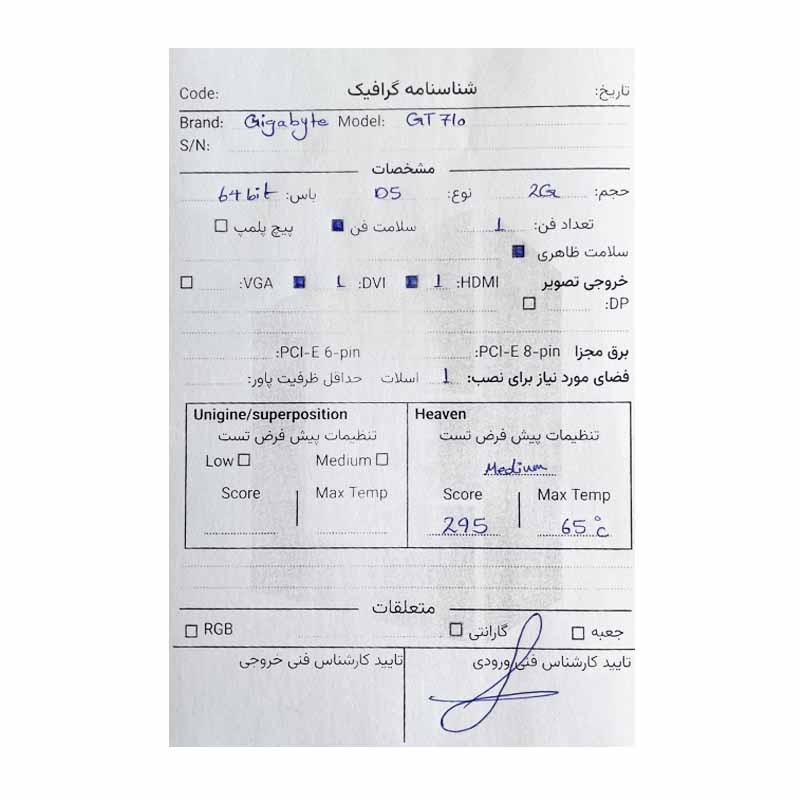 Code: شناسنامه گرافیک تاریخ:
Brand: Gigabyte Model: GT 710
S/N:
مشخصات
حجم: 2G نوع: D5 باس: 64 bit
تعداد فن: 1 سلامت فن پیچ پلمپ
سلامت ظاهری
خروجی تصویر HDMI: 1 DVI: 1 VGA:
DP:
برق مجزا PCI-E 8-pin: PCI-E 6-pin:
فضای مورد نیاز برای نصب: 1 اسلات حداقل ظرفیت پاور:
Unigine/superposition Heaven
تنظیمات پیش فرض تست تنظیمات پیش فرض تست
Low Medium Medium
Score Max Temp Score Max Temp
295 65°c
متعلقات
جعبه گارانتی RGB
تایید کارشناس فنی ورودی تایید کارشناس فنی خروجی